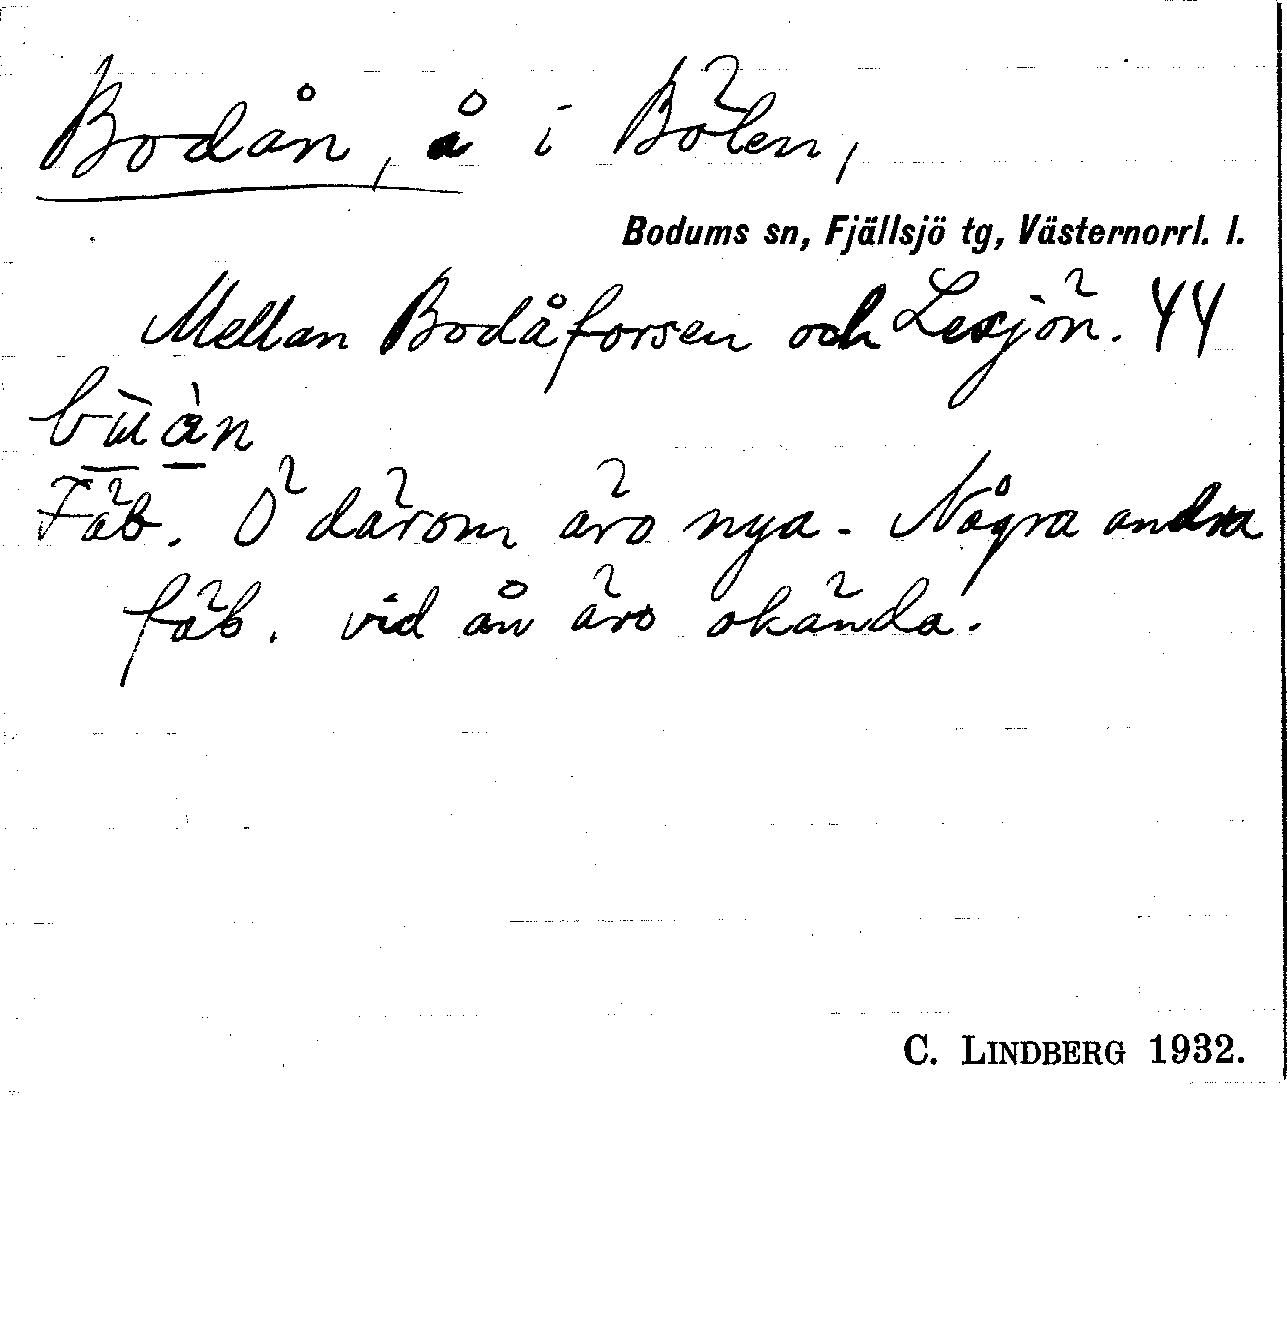 Bodån, å i Bölen,
Bodums sn, Fjällsjö tg, Västernorrl. l.
Mellan Bodåforsen och Lesjön. 44
Fäb. Ö därom äro nya. Några andra
fäb. vid ån äro okända.
C. LINDBERG 1932.